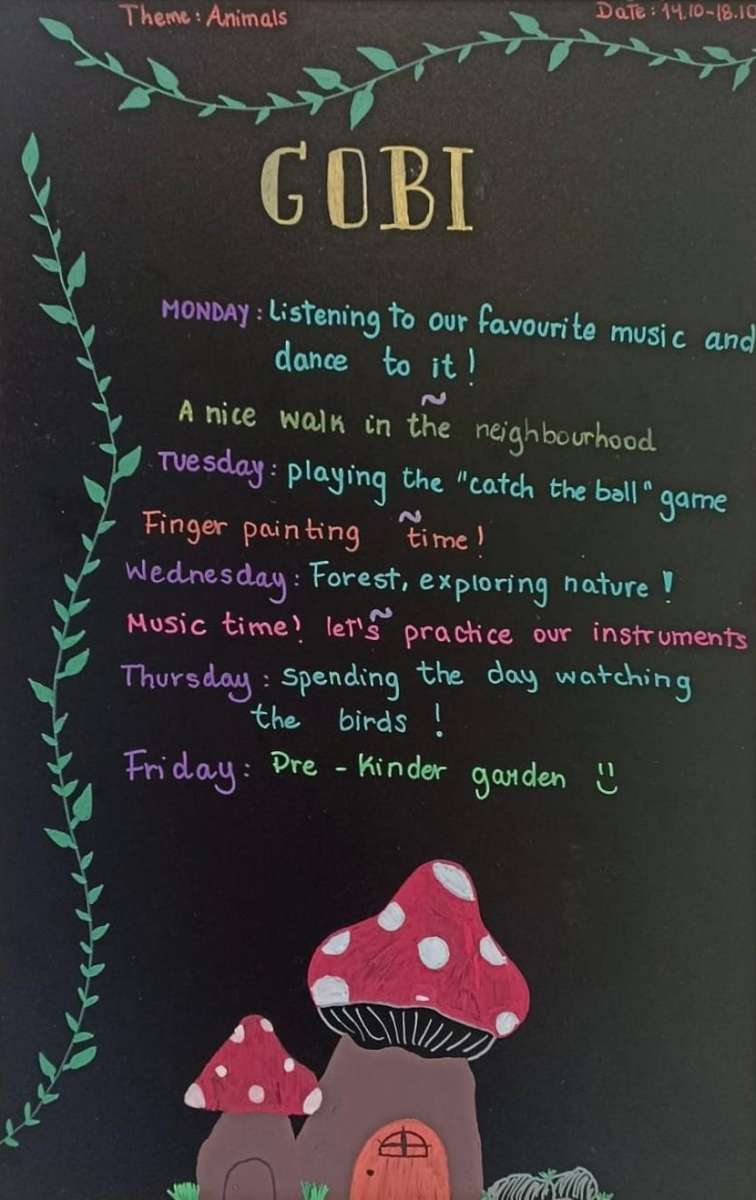 Theme: Animals
Date: 14.10-18.10
GOBI
MONDAY: Listening to our favourite music and
dance to it!
~
A nice walk in the neighbourhood
Tuesday: playing the "catch the ball" game
~
Finger painting time!
Wednesday: Forest, exploring nature!
~
Music time! let's practice our instruments
Thursday: spending the day watching
the birds!
Friday: Pre-Kinder garden :)